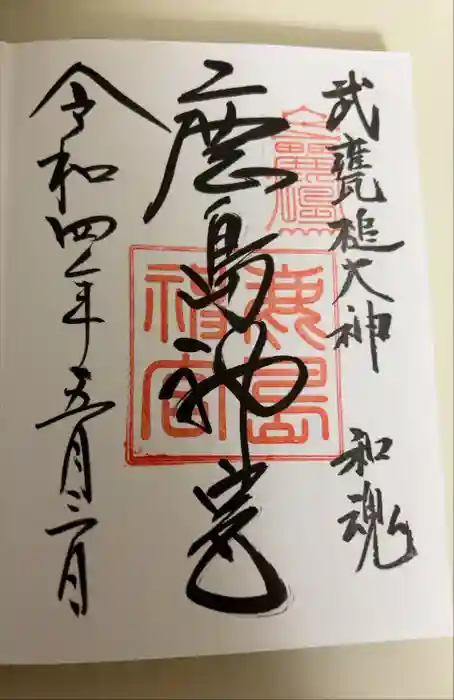 武甕槌大神 和魂
鹿島神宮
鹿島
神宮
令和四年五月三日